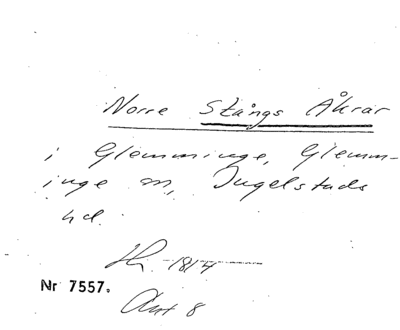 Norre Stångs Åkrar
i Glemminge, Glemm-
inge sn, Ingelstads
hd.
1814
Nr 7557.
Akt 8